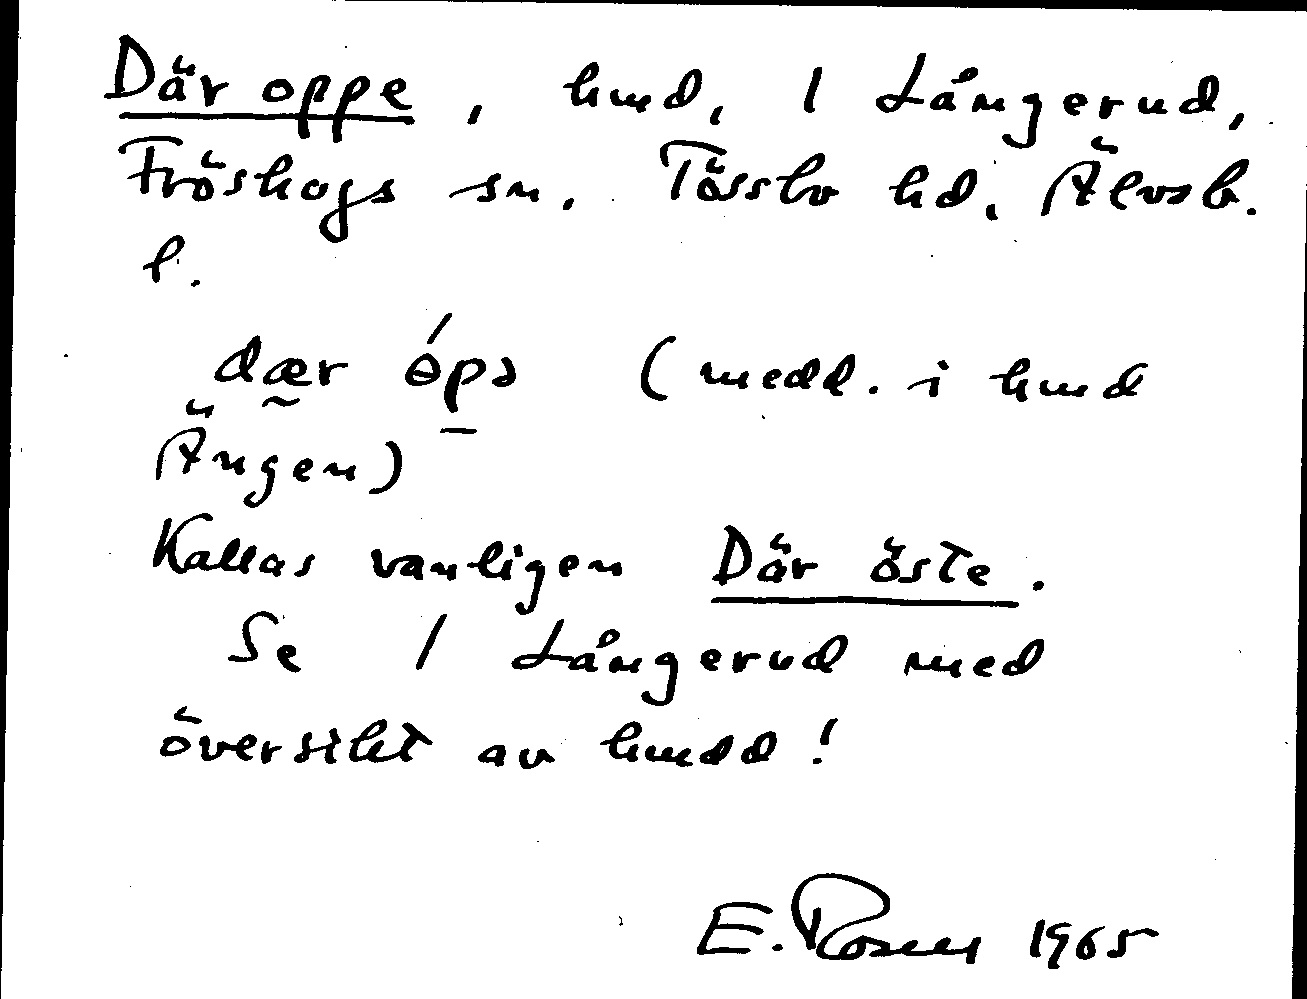 Där oppe, hmd, 1 Långerud,
Fröskogs sn. Tössbo hd. Älvsb.
l.
dær ópə (medd. i hmd
Ängen)
Kallas vanligen Där öste.
Se 1 Långerud med
översikt av hmdd!
E. Rosell 1965